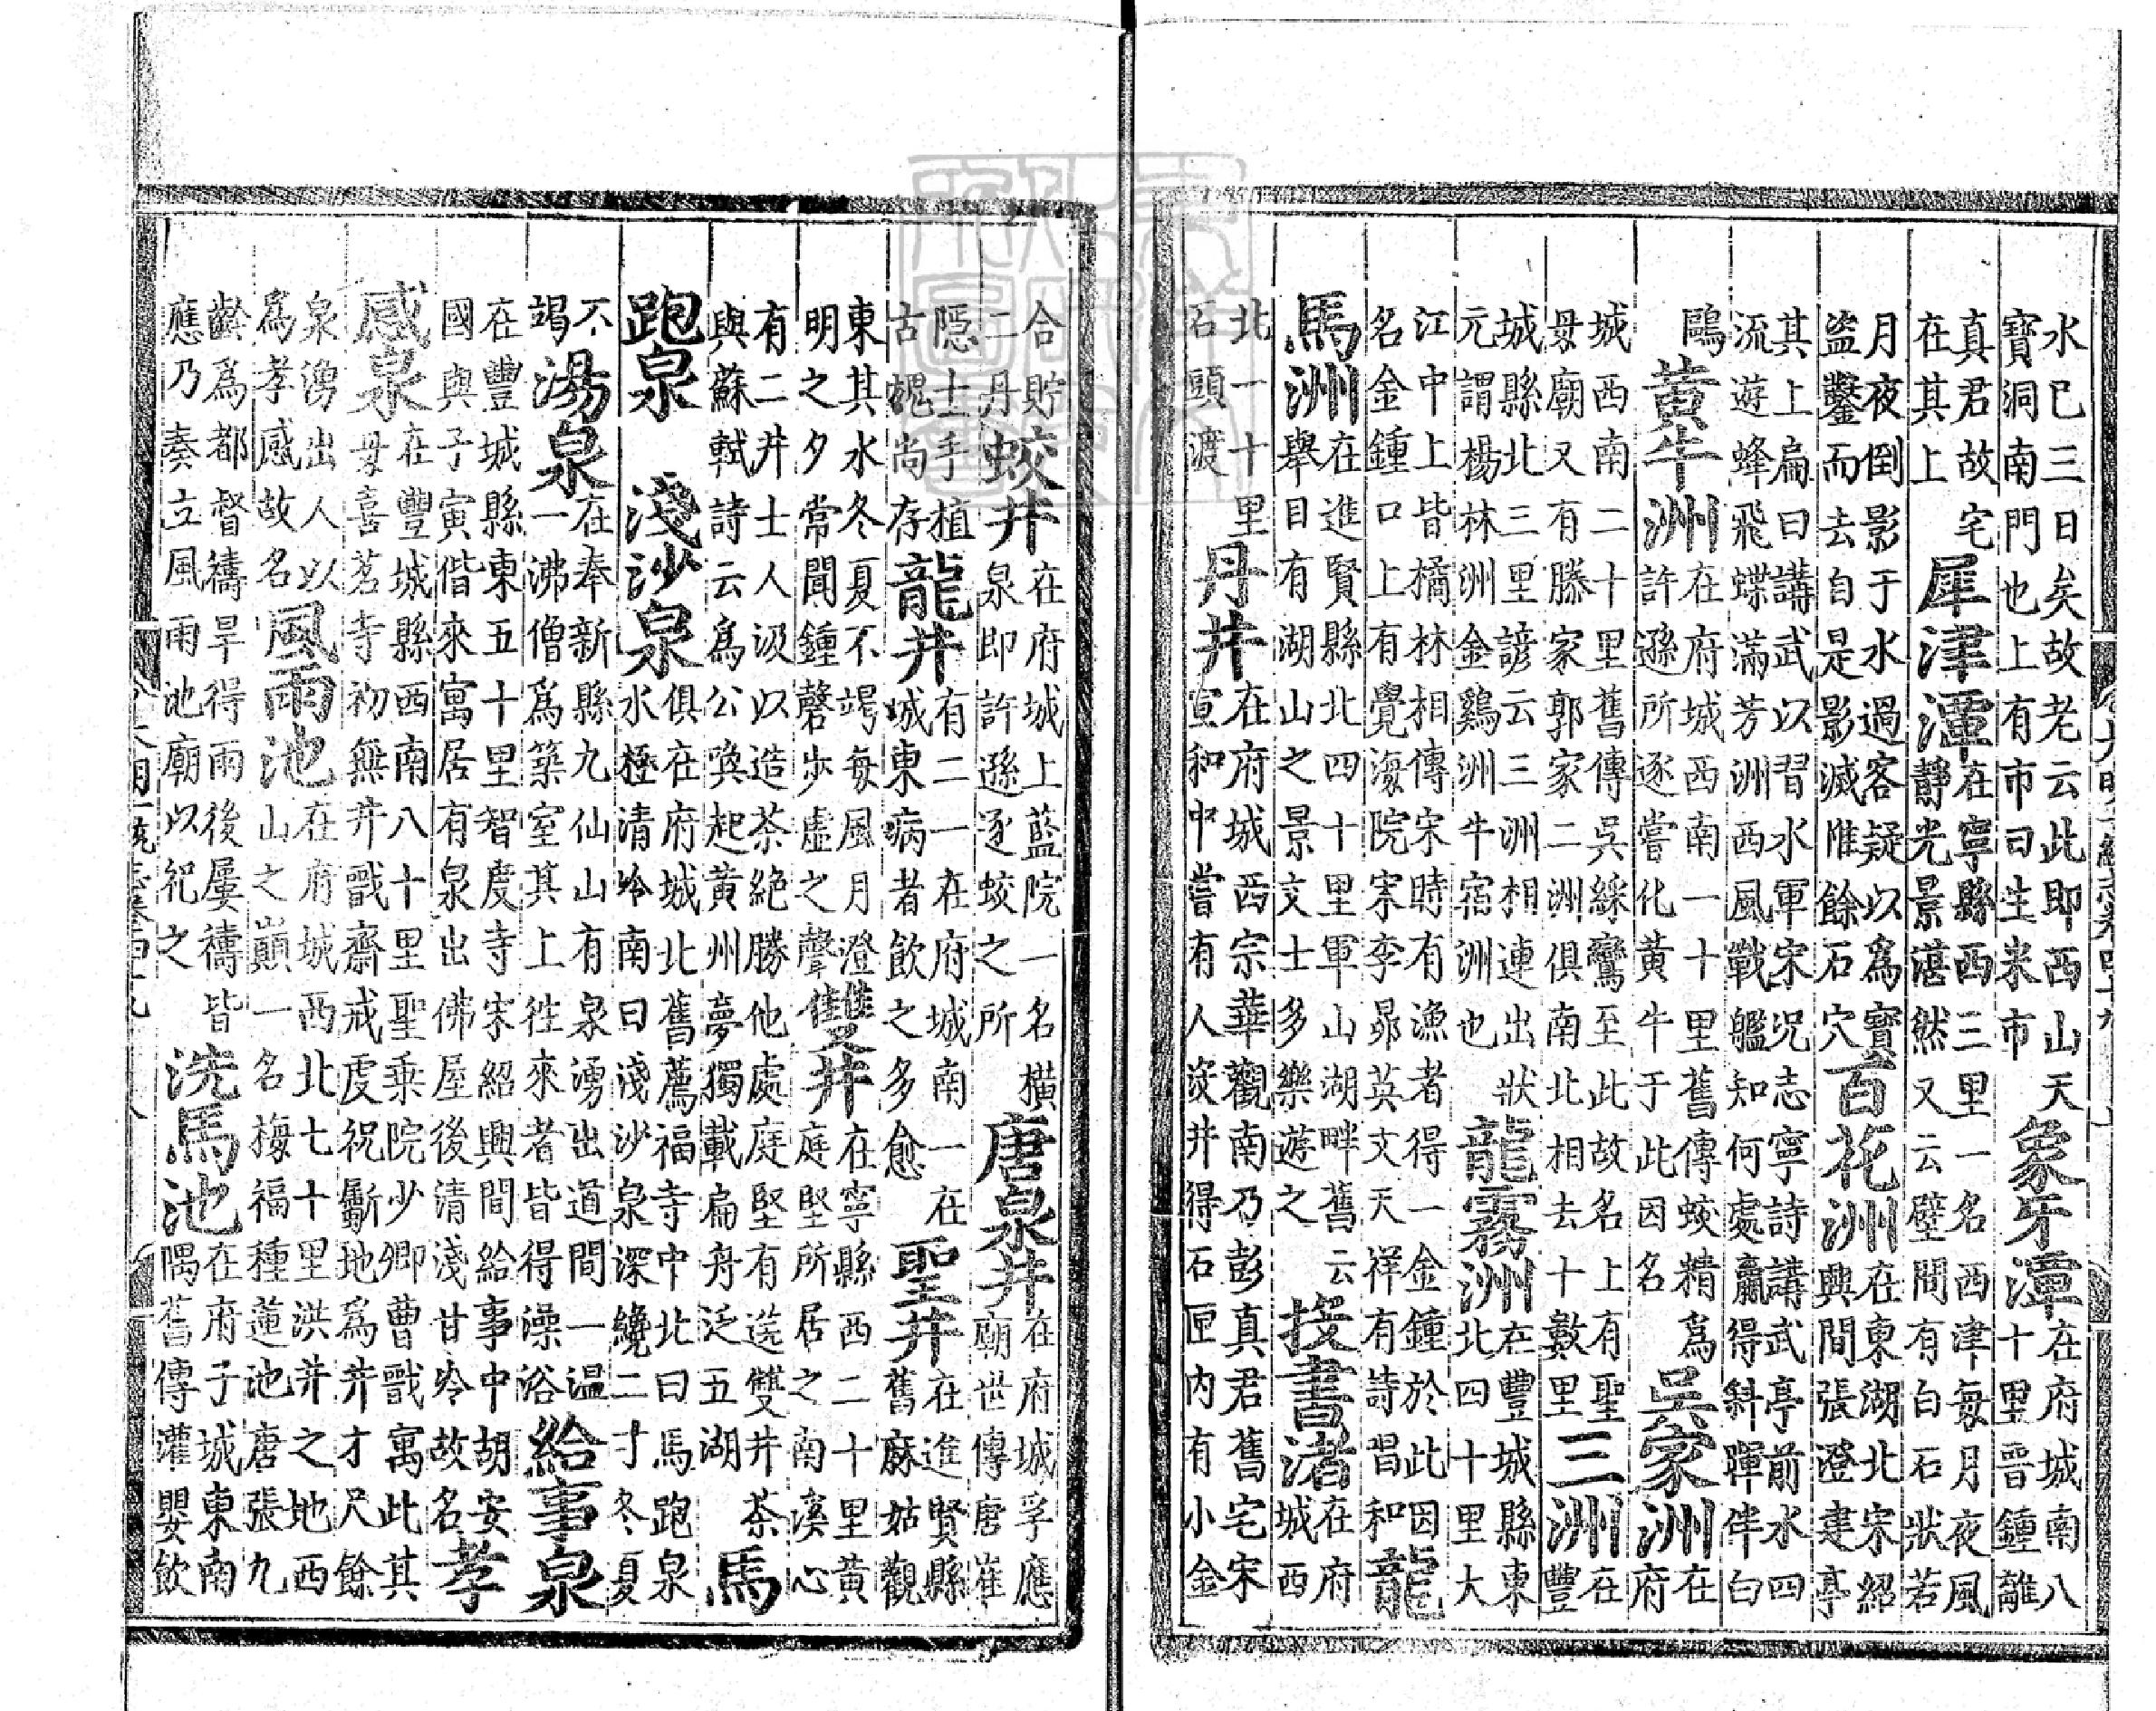 水已三日矣故老云此即西山天寶洞南門也上有市曰生米市象牙潭在府城南八十里晉鍾離
真君故宅在其上犀津潭在寧縣西三里一名西津每月夜風靜光景湛然又云壁間有白石狀若
月夜倒影于水過客疑以爲寶盜鑿而去自是影滅惟餘石穴百花洲在東湖北宋紹興間張澄建亭
其上扁曰講武以習水軍宋况志寧詩講武亭前水四流遊蜂飛蝶滿芳洲西風戰艦知何處贏得斜暉伴白
鷗黄牛洲在府城西南一十里舊傳蛟精爲許遜所逐嘗化黄牛于此因名吳家洲在府
城西南二十里舊傳吳綵鸞至此故名上有聖母廟又有滕家郭家二洲俱南北相去十數里三洲在豐
城縣北三里諺云三洲相連出狀元謂楊林洲金鷄洲牛宿洲也龍霧洲在豐城縣東北四十里大
江中上皆橘林相傳宋時有漁者得一金鍾於此因名金鍾口上有覺濠院宋李昴英文天祥有詩唱和龍
馬洲在進賢縣北四十里軍山湖畔舊云舉目有湖山之景文士多樂遊之投書渚在府城西
北一十里石頭渡丹井在府城西宗華觀南乃彭真君舊宅宋宣和中嘗有人浚井得石匣内有小金
合貯二丹蛟井在府城上藍院一名橫泉即許遜逐蛟之所唐泉井在府城孚應廟世傳唐崔
隱士手植古槐尚存龍井有二一在府城南一在城東病者飲之多愈聖井在進賢縣舊麻姑觀
東其水冬夏不竭每風月澄明之夕常聞鍾磬步虛之聲雙井在寧縣西二十里黄庭堅所居之南溪心
有二井土人汲以造茶絶勝他處庭堅有送雙井茶與蘇軾詩云爲公喚起黄州夢獨載扁舟泛五湖馬
跑泉淺沙泉俱在府城北舊薦福寺中北曰馬跑泉水極清冷南曰淺沙泉深纔二寸冬夏
不竭湯泉在奉新縣九仙山有泉湧出道間一温一沸僧爲築室其上徃來者皆得澡浴給事泉
在豐城縣東五十里智度寺宋紹興間給事中胡安國與子寅偕來寓居有泉出佛屋後清淺甘冷故名孝
感泉在豐城縣西南八十里聖乗院少卿曹戩寓此其母喜茗寺初無井戩齋戒虔祝斸地爲井才尺餘
泉湧出人以爲孝感故名風雨池在府城西北七十里洪井之地西山之巔一名梅福種蓮池唐張九
齡爲都督禱旱得雨後屢禱皆應乃奏立風雨池廟以祀之洗馬池在府子城東南隅舊傳灌嬰飲